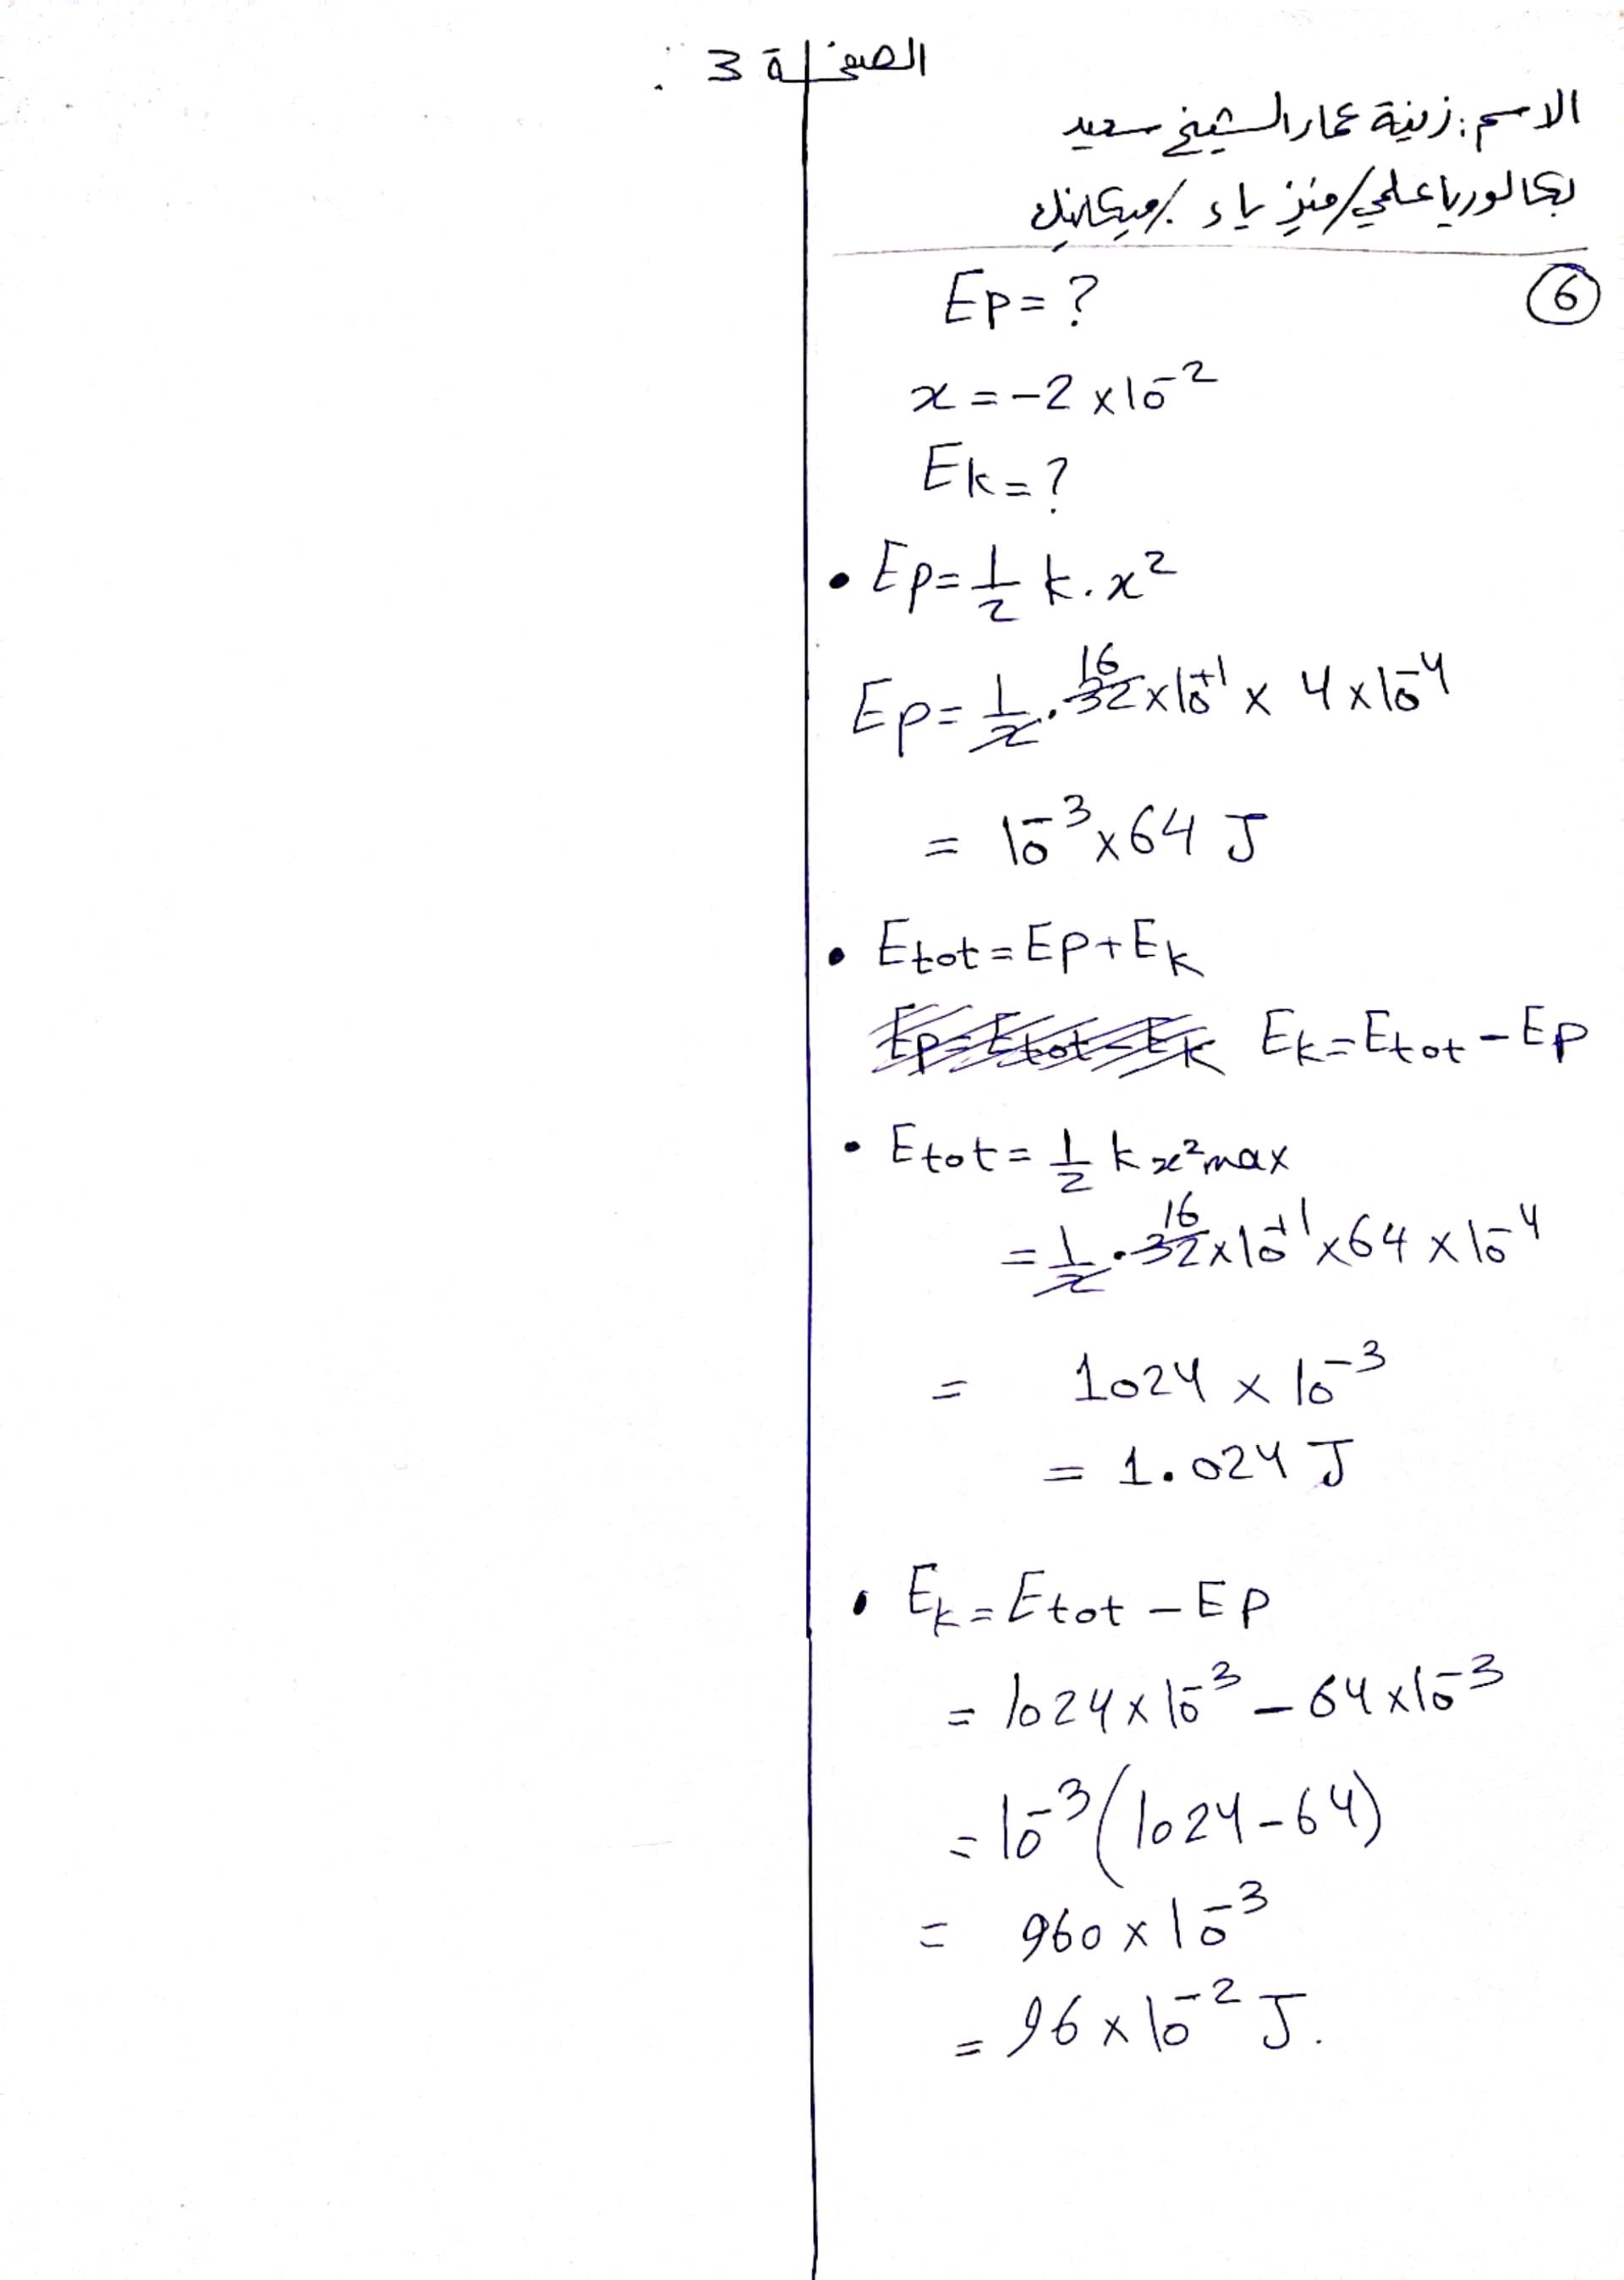 الصفحة 3
الاسم: زينة عمار الشيخ سعيد
بكالوريا علمي/فيزياء/ميكانيك
6
Ep = ?
x = -2 × 10⁻²
Ek = ?
• Ep = 1/2 k . x²
Ep = 1/2 . 32 16 × 10⁺¹ × 4 × 10⁻⁴
= 10⁻³ × 64 J
• Etot = Ep + Ek
Ep = Etot - Ek Ek = Etot - Ep
• Etot = 1/2 k x²max
= 1/2 . 32 16 × 10⁺¹ × 64 × 10⁻⁴
= 1024 × 10⁻³
= 1.024 J
• Ek = Etot - Ep
= 1024 × 10⁻³ - 64 × 10⁻³
= 10⁻³ (1024 - 64)
= 960 × 10⁻³
= 96 × 10⁻² J.